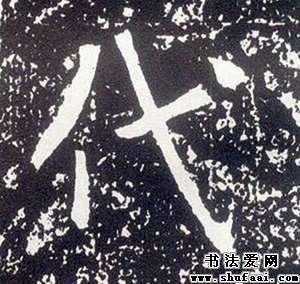 代
书法爱网
www.shufaai.com